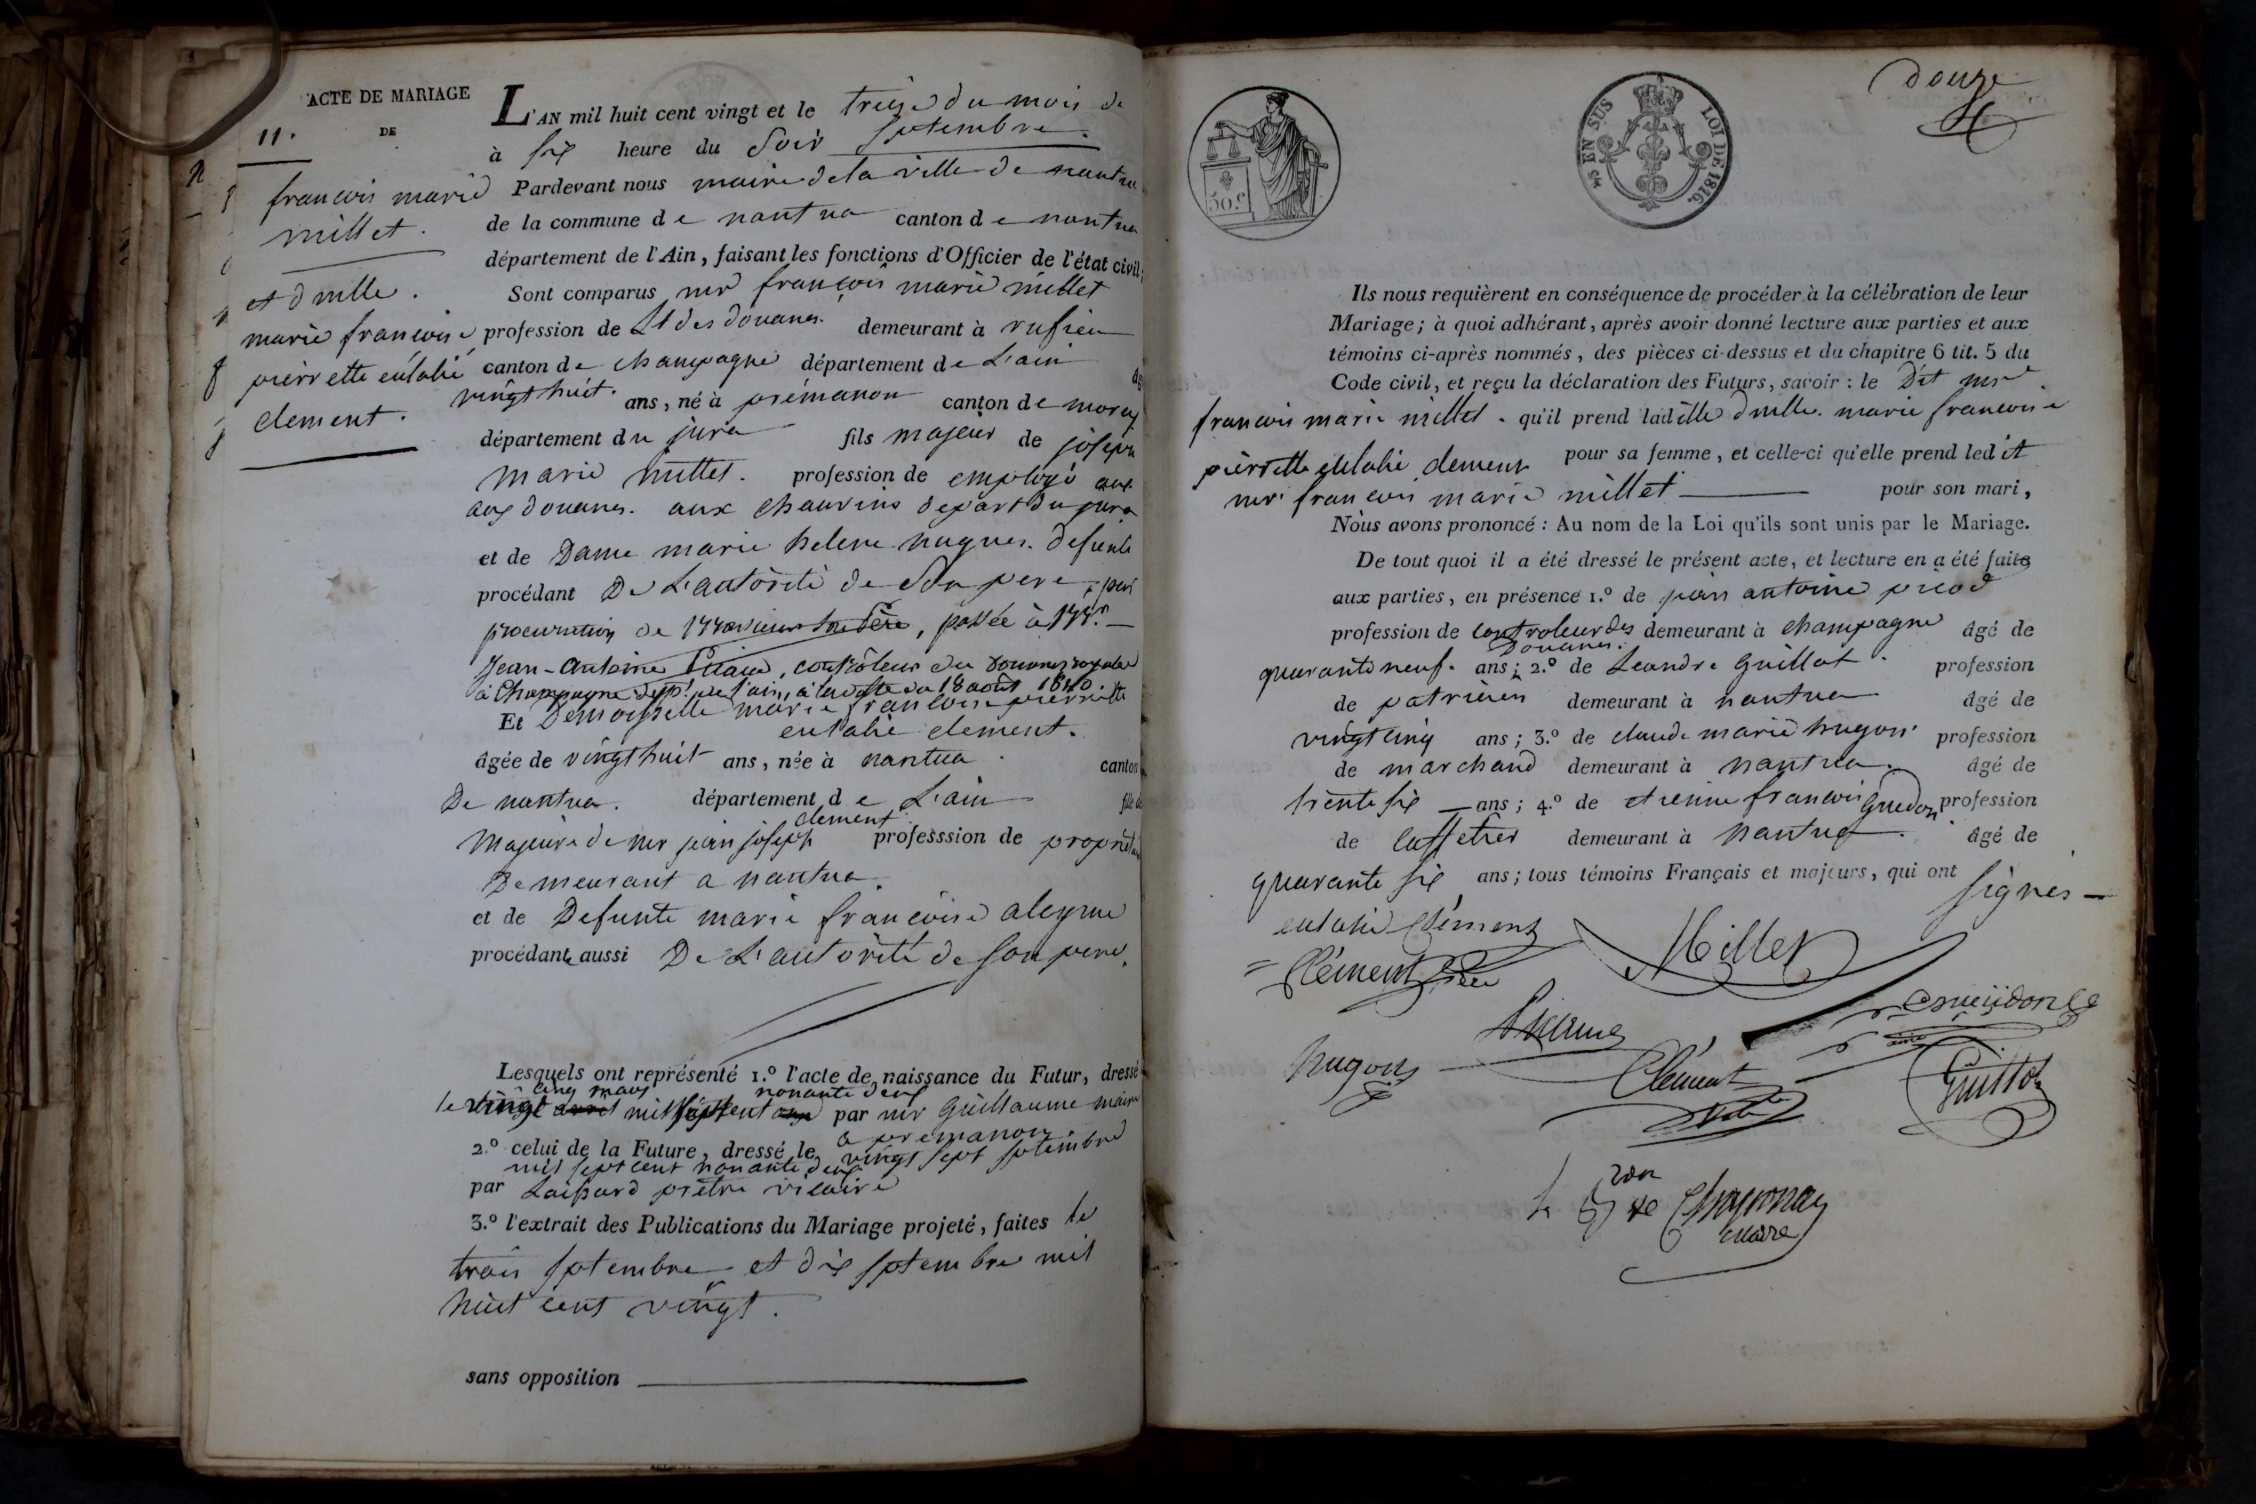 ACTE DE MARIAGE
11.
DE
francois marie
millet.
et dmlle.
marie francoise
pierrette eulalie
clement.
L'AN mil huit cent vingt et le treize du mois de
septembre.
à six heure du soir
Pardevant nous maire de la ville de nantua
de la commune de nantua canton de nantua
département de l'Ain, faisant les fonctions d'Officier de l'état civil;
Sont comparus mr françois marie millet
profession de Lt des douanes. demeurant à rufieu
canton de champagne département de L'ain
vingt huit. ans, né à prémanon canton de morez
département du jura fils majeur de joseph
marie millet. profession de employé aux
aux douanes. aux chauvins depart du jura
et de Dame marie helene nugues. defunte
procédant De L'autorité de son pere, par
procuration de , passée à Mr.
Jean-Antoine , contrôleur des Douanes royales
à Champagne dept. de l'ain, à la date du 18 août 1820.
Et Demoiselle marie francoise pierrette
eulalie clement.
âgée de vingt huit ans, née à nantua. canton
De nantua. département de L'ain fille de
clement
Majeure de mr jean joseph professsion de propriétaire
Demeurant a nantua.
et de Defunte marie francoise aleyme
procédante aussi De L'autorité de son pere.
Lesquels ont représenté 1.º l'acte de naissance du Futur, dressé
cinq mars nonante deux
le vingt avril mil sept cent par mr Guillaume maire
a premanon
2.º celui de la Future, dressé le vingt sept septembre
mil sept cent nonante deux
par prêtre vicaire
3.º l'extrait des Publications du Mariage projeté, faites le
trois septembre et dix septembre mil
huit cent vingt.
sans opposition
douze
50 c.
EN SUS
LOI DE 1816.
Ils nous requièrent en conséquence de procéder à la célébration de leur
Mariage; à quoi adhérant, après avoir donné lecture aux parties et aux
témoins ci-après nommés, des pièces ci-dessus et du chapitre 6 tit. 5 du
Code civil, et reçu la déclaration des Futurs, savoir : le Dit mr
francois marie millet. qu'il prend laditte dmlle. marie francoise
pierrette eulalie clement pour sa femme, et celle-ci qu'elle prend ledit
mr francois marie millet pour son mari,
Nous avons prononcé : Au nom de la Loi qu'ils sont unis par le Mariage.
De tout quoi il a été dressé le présent acte, et lecture en a été faite
aux parties, en présence 1.º de jean antoine
profession de controleur des demeurant à champagne âgé de
Douanes.
quarante neuf. ans; 2.º de Leandre Guillot. profession
de demeurant à nantua âgé de
vingt cinq ans; 3.º de claude marie hugon. profession
de marchand demeurant à nantua. âgé de
trente six ans; 4.º de etienne francois Guedon profession
de caffetier demeurant à nantua. âgé de
quarante six ans; tous témoins Français et majeurs, qui ont
signés
eulalie Clément
Millet
Clément père
hugon
Clément
Guillot
maire